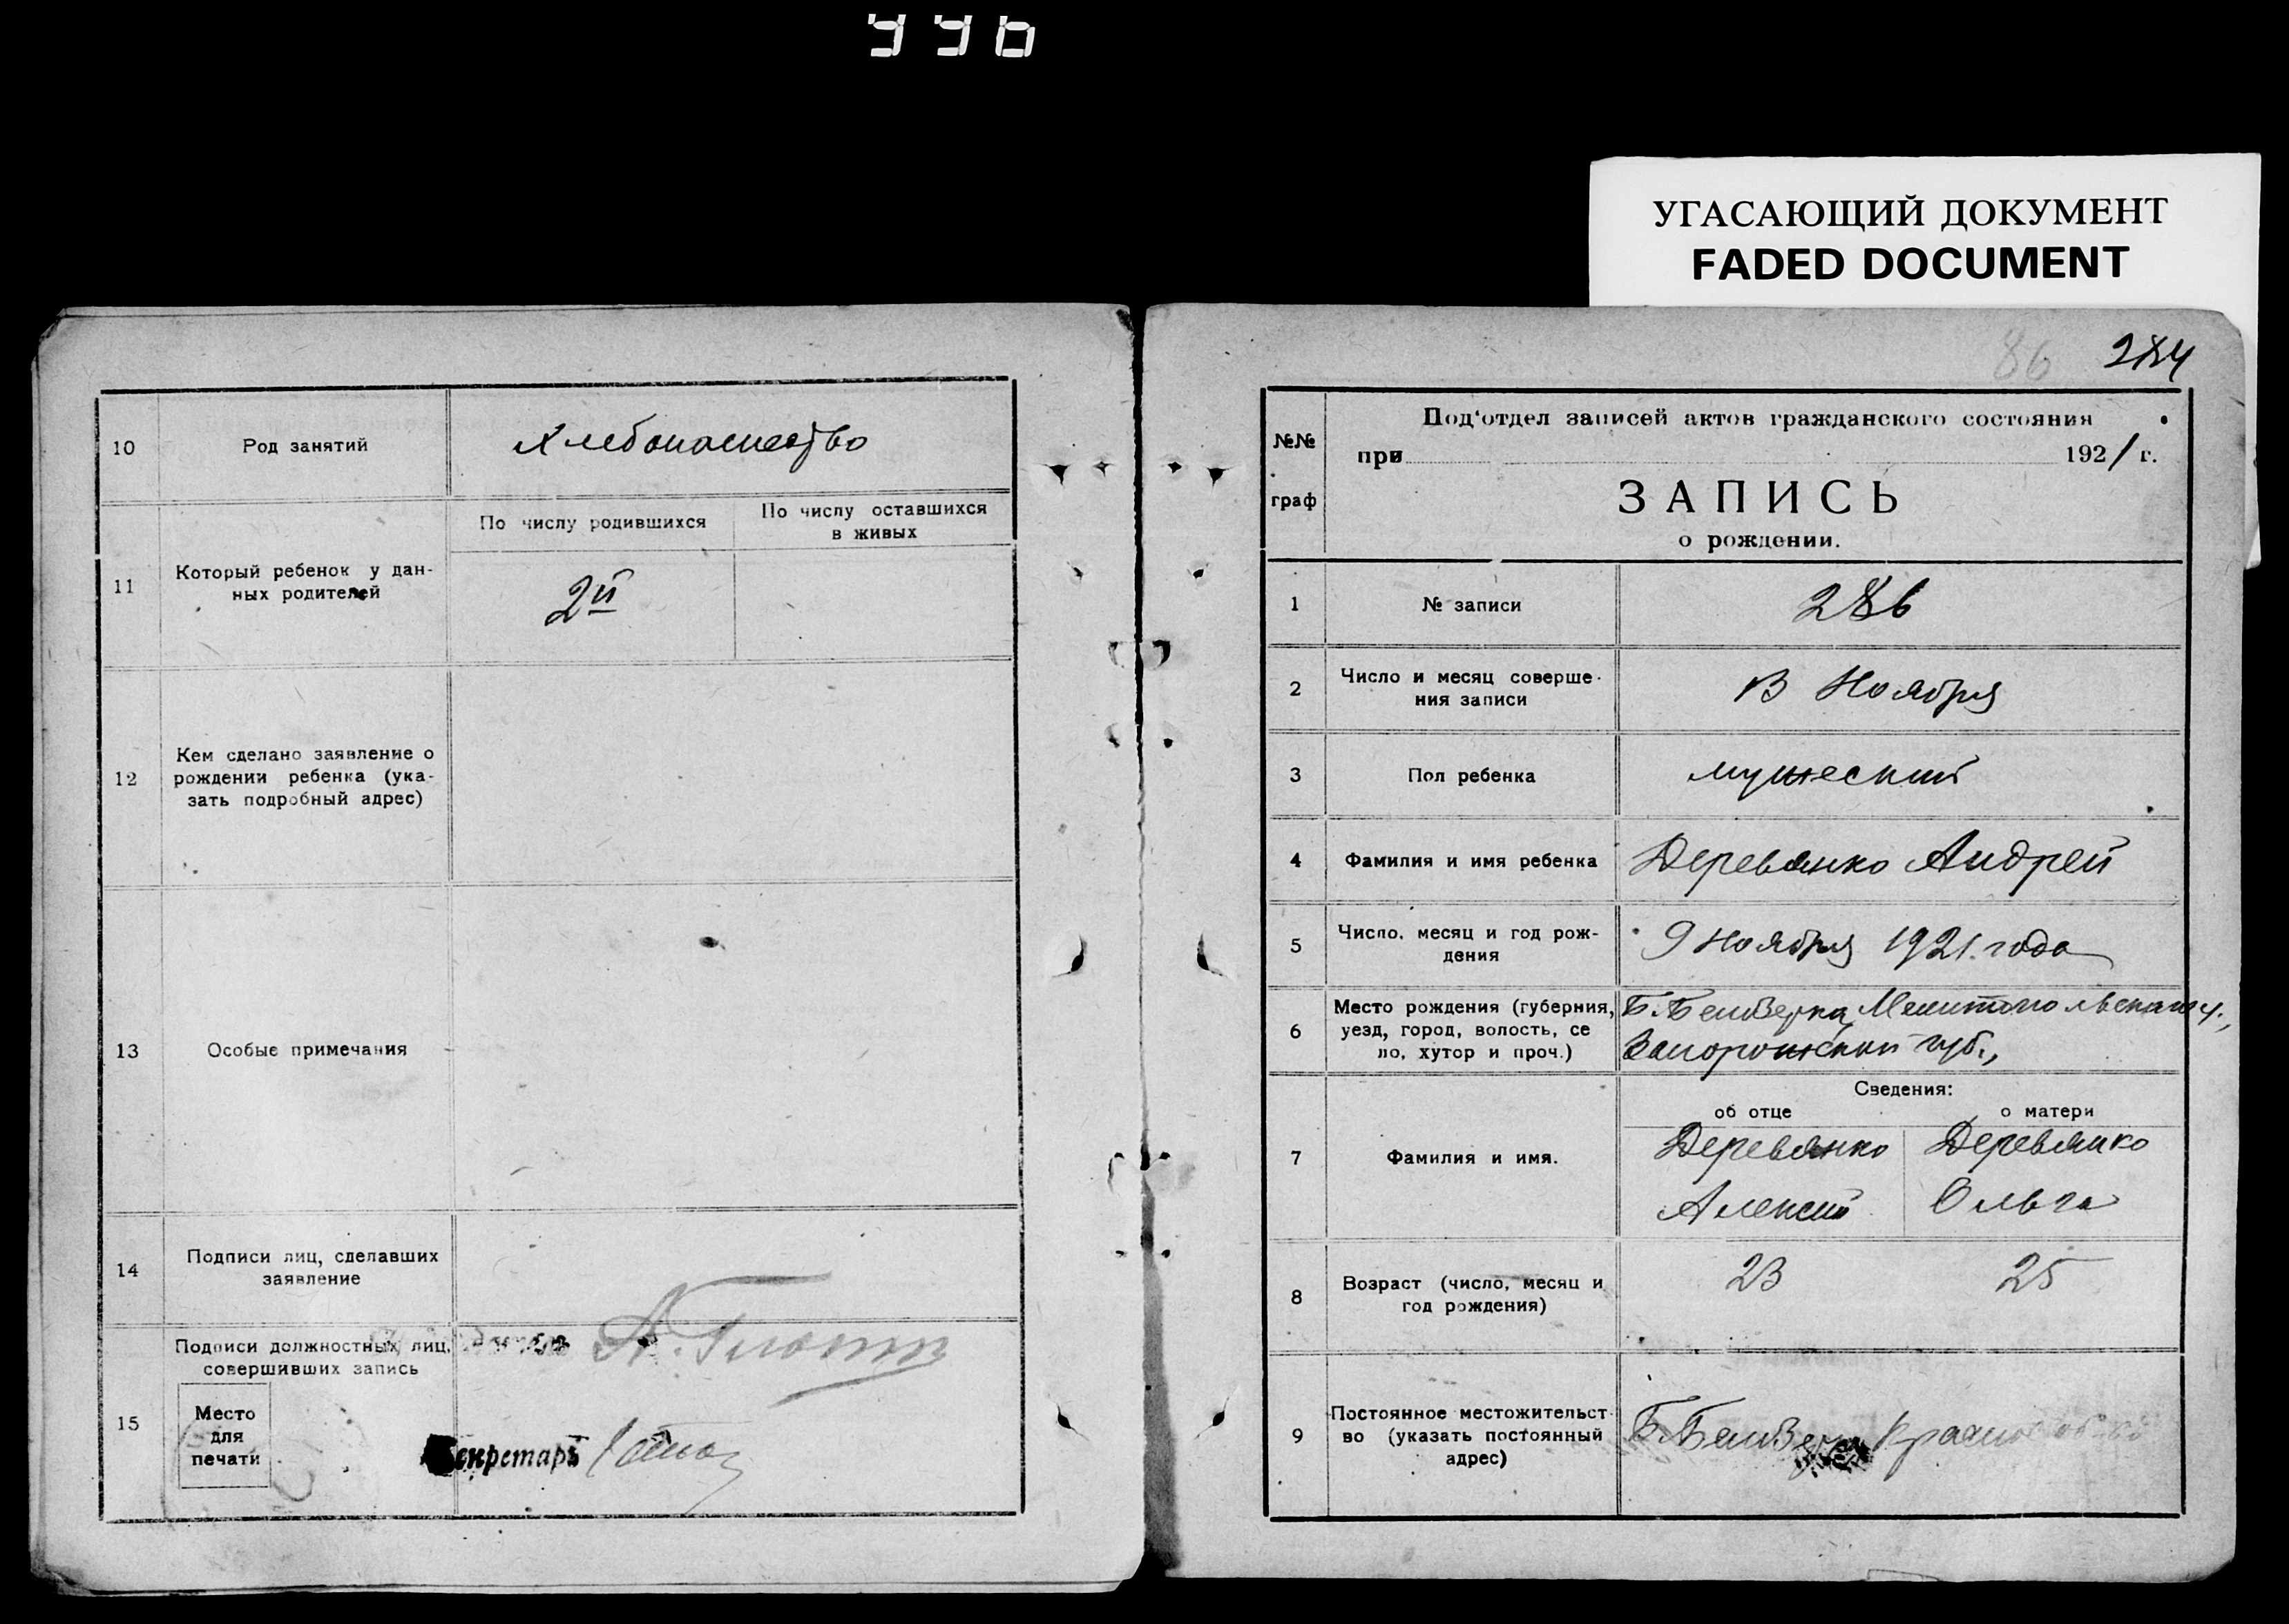 996
УГАСАЮЩИЙ ДОКУМЕНТ
FADED DOCUMENT
10
Род занятий
Хлебопашество
11
Который ребенок у дан-
ных родителей
По числу родившихся
По числу оставшихся
в живых
2й
12
Кем сделано заявление о
рождении ребенка (ука-
зать подробный адрес)
13
Особые примечания
14
Подписи лиц, сделавших
заявление
15
Подписи должностных лиц,
совершивших запись
Место
для
печати
А.
Секретарь
86 284
№№
граф
Под‘отдел записей актов гражданского состояния
при 1921 г.
ЗАПИСЬ
о рождении.
1
№ записи
286
2
Число и месяц соверше-
ния записи
Ноября
3
Пол ребенка
мужеский
4
Фамилия и имя ребенка
Деревянко Андрей
5
Число, месяц и год рож-
дения
9 Ноября 1921. года
6
Место рождения (губерния,
уезд, город, волость, се
ло, хутор и проч.)
Б. Белозерка, Мелитопольскаго у.,
Запорожской губ.,
Сведения:
об отце
о матери
7
Фамилия и имя.
Деревянко
Алексий
Деревянко
Ольга
8
Возраст (число, месяц и
год рождения)
23
25
9
Постоянное местожительст-
во (указать постоянный
адрес)
Б. Белозер